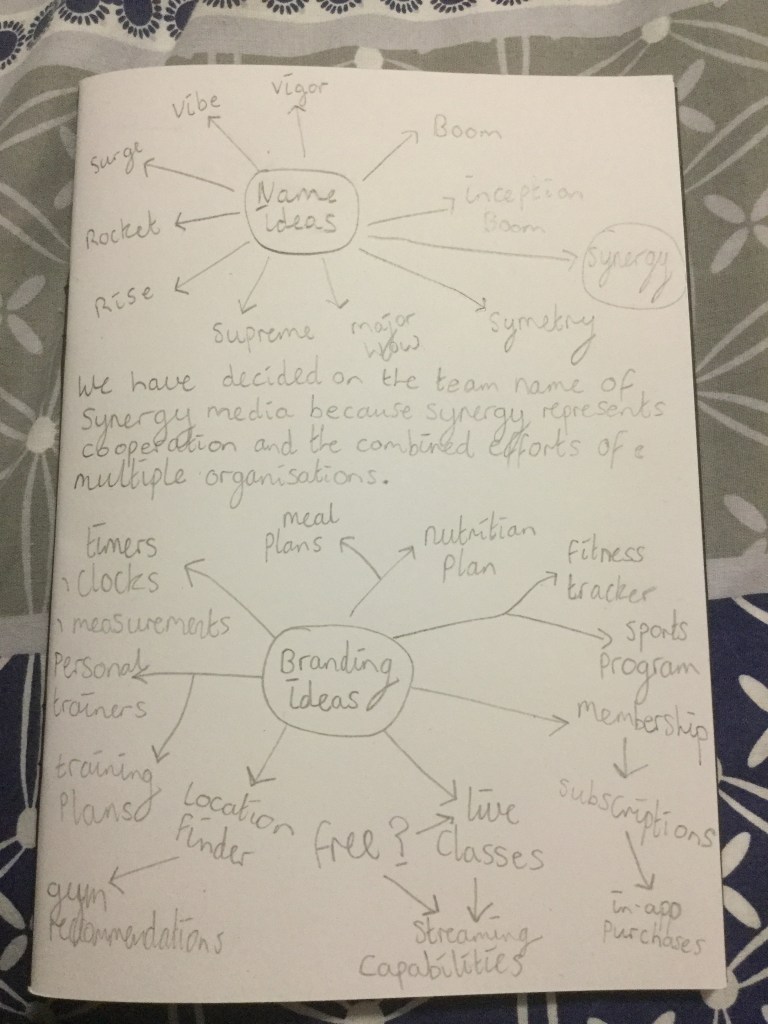 Vibe
Vigor
Boom
Surge
Name
ideas
inception
Boom
Rocket
Synergy
Rise
Supreme
major
wow
Symetry
We have decided on the team name of
Synergy media because synergy represents
cooperation and the combined efforts of
multiple organisations.
timers
Clocks
measurements
meal
Plans
nutrition
Plan
Fitness
tracker
Sports
Program
Personal
trainers
Branding
ideas
membership
training
Plans
Location
Finder
free?
live
Classes
Subscriptions
gym
recommendations
Streaming
Capabilities
in-app
Purchases